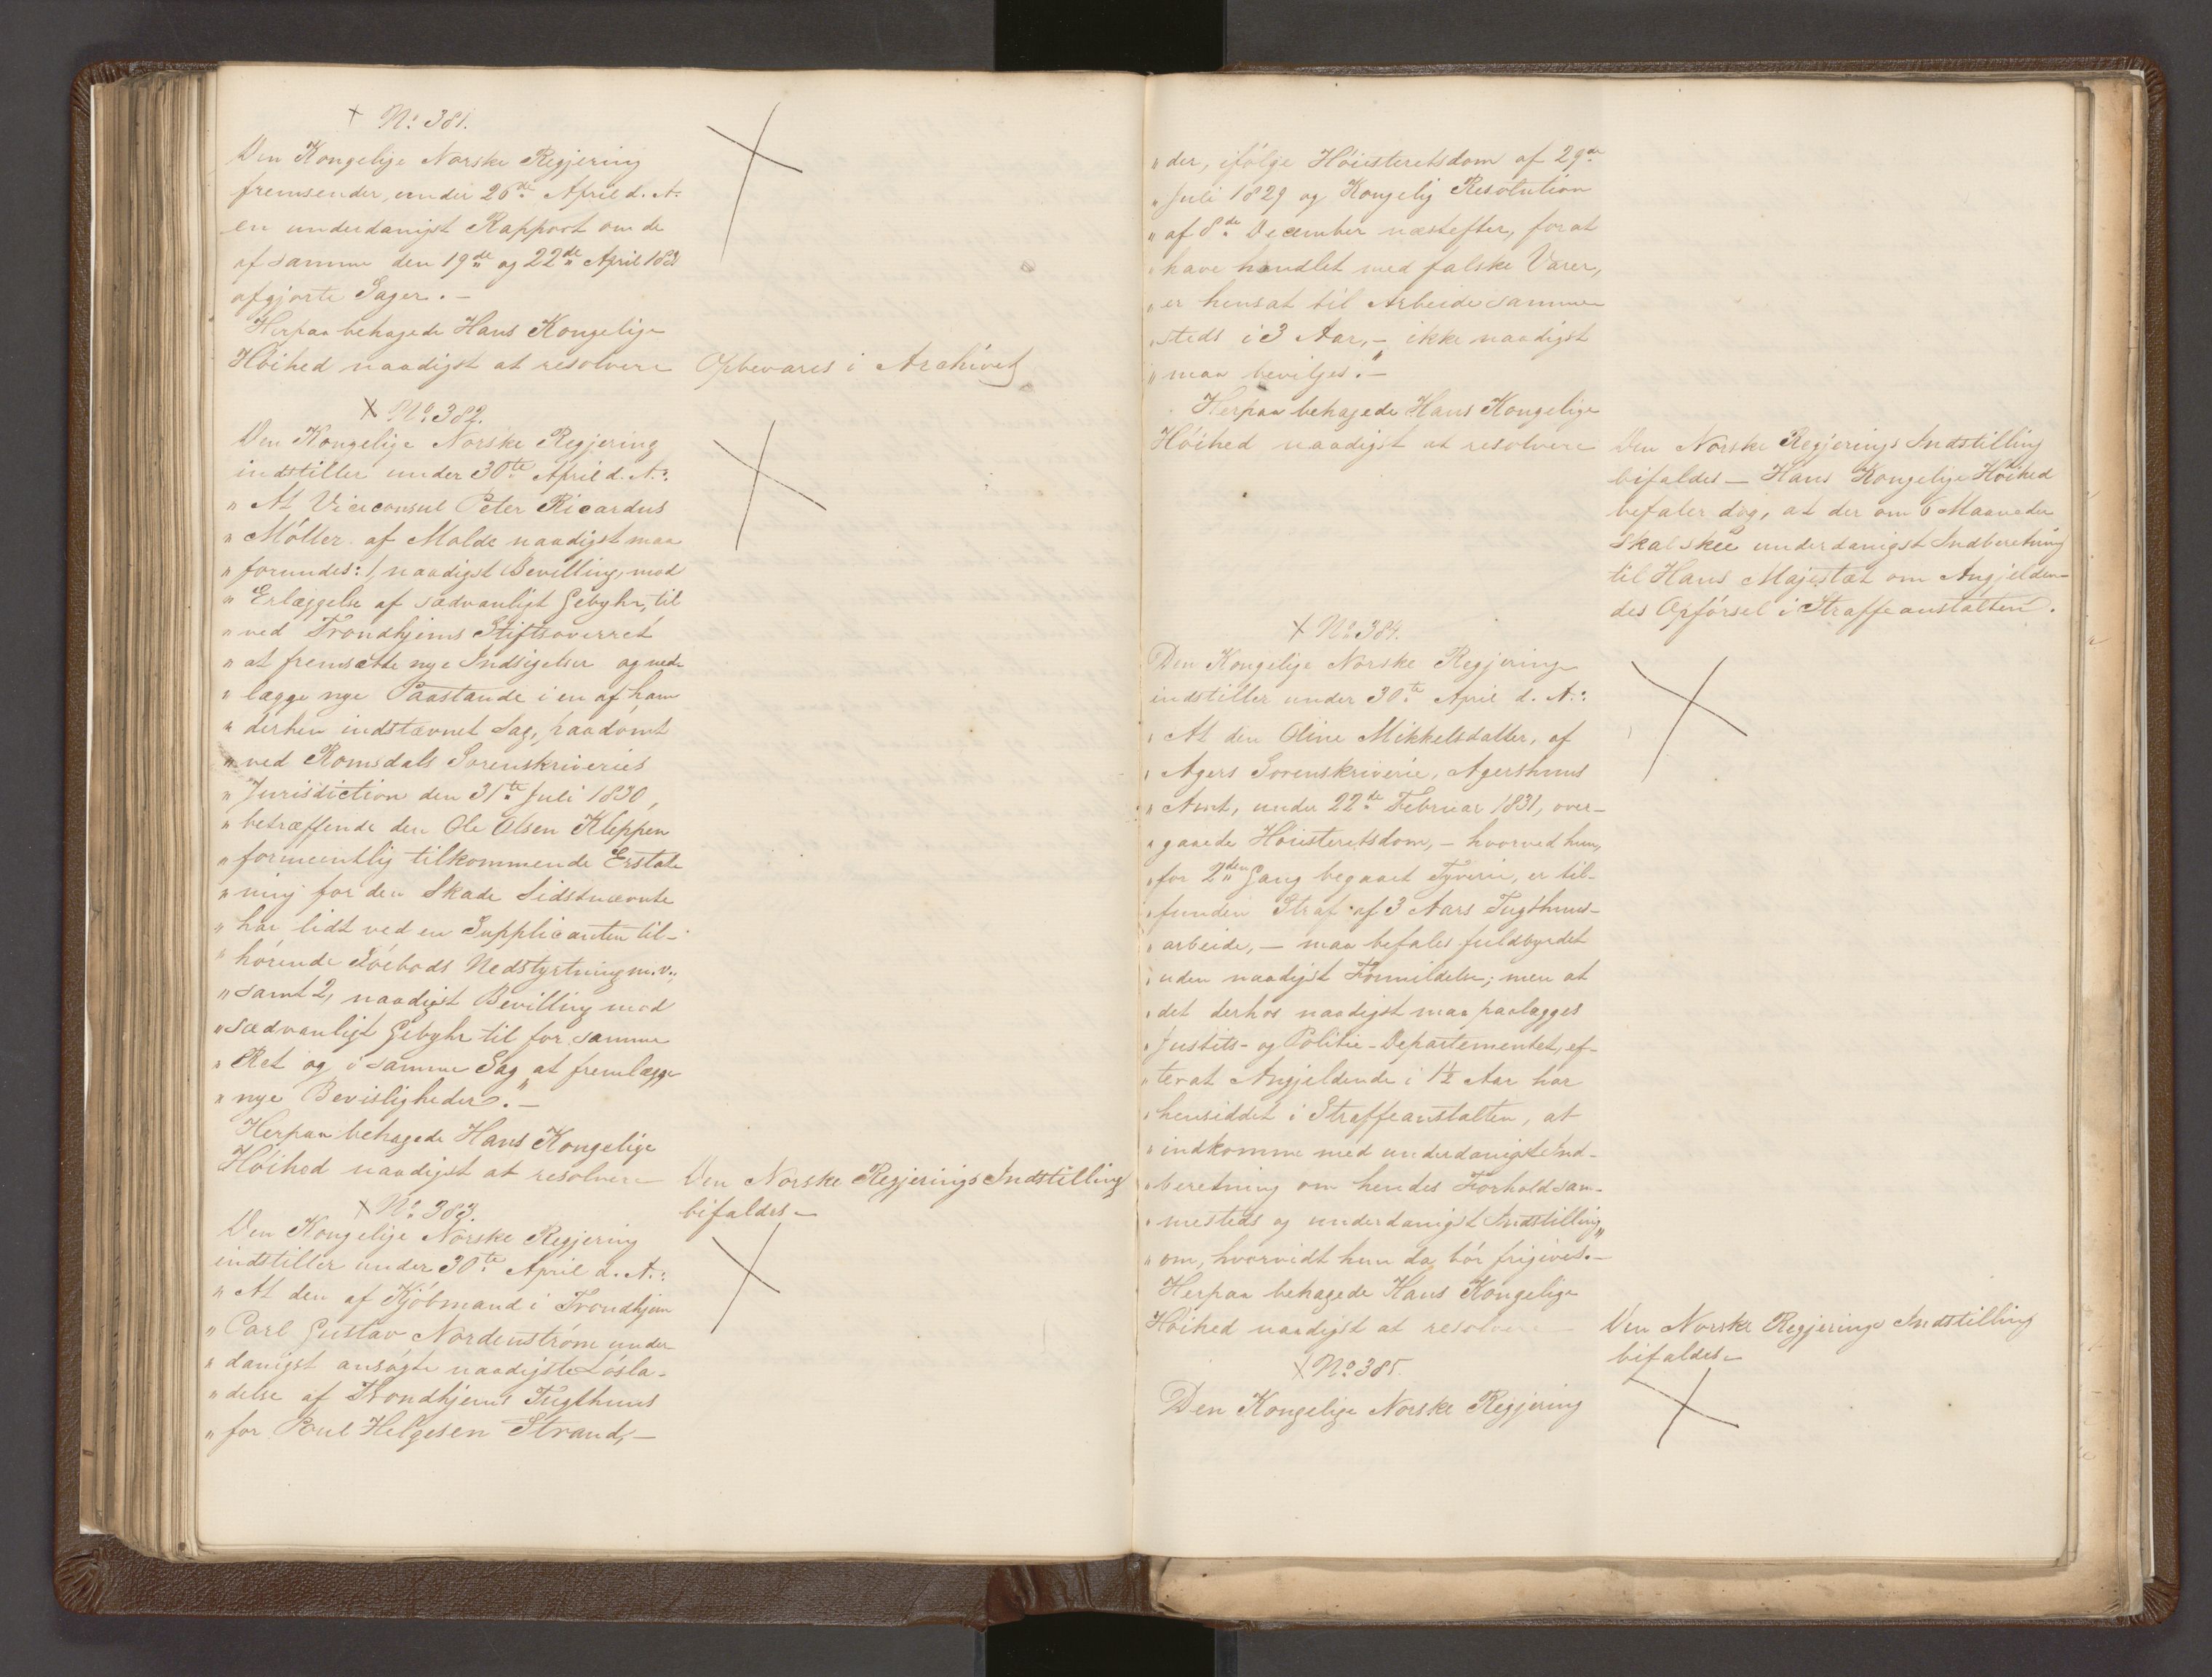 + No: 381.
Den Kongelige Norske Regjering
fremsender, under 26de April d. A.
en underdanigst Rapport om de
af samme den 19de og 22de April 1831
afgjorte Sager. —
Herpaa behagede Hans Kongelige
Höihed naadigst at resolvere
Opbevares i Archivet
X No: 382.
Den Kongelige Norske Regjering
indstiller under 30te April d. A.:
" At Viceconsul Peter Ricardus
" Möller af Molde naadigst maa
" forundes: 1, naadigst Bevilling, mod
" Erlæggelse af sædvanligt Gebyhr, til
" ved Trondhjems Stiftsoverret
" at fremsætte nye Indsigelser og ned-
" lægge nye Paastande i en af ham
" derhen indstævnet Sag, paadömt
" ved Romsdals Sorenskriveries
" Jurisdiction den 31te Juli 1830,
" betræffende den Ole Olsen Kleppen
" formeentlig tilkommende Erstat-
" ning for den Skade Sidstnævnte
" har lidt ved en Supplicanten til-
" hörende Söebods Nedstyrtning m. v.,
" samt 2, naadigst Bevilling mod
" sædvanligt Gebyhr til for samme
" Ret og i samme Sag at fremlægge
" nye Bevisligheder." —
Herpaa behagede Hans Kongelige
Höihed naadigst at resolvere
Den Norske Regjerings Indstilling
bifaldes —
X No: 383.
Den Kongelige Norske Regjering
indstiller under 30te April d. A.:
" At den af Kjöbmand i Trondhjem
" Carl Gustav Nordenström under-
" danigst ansögte naadigste Lösla-
" delse af Trondhjems Tugthuus
" for Poul Helgesen Strand, —
" der, ifölge Höiesteretsdom af 29de
" Juli 1829 og Kongelig Resolution
" af 8de December næstefter, for at
" have handlet med falske Varer,
" er hensat til Arbeide samme-
" steds i 3 Aar, — ikke naadigst
" maa bevilges." —
Herpaa behagede Hans Kongelige
Höihed naadigst at resolvere
Den Norske Regjerings Indstilling
bifaldes — Hans Kongelige Höihed
befaler dog, at der om 6 Maaneder
skal skee underdanigst Indberetning
til Hans Majestæt om Angjelden-
des Opförsel i Straffeanstalten.
X No: 384.
Den Kongelige Norske Regjering
indstiller under 30te April d. A.:
" At den Oline Mikkelsdatter, af
" Agers Sorenskriverie, Agershuus
" Amt, under 22de Februar 1831, over-
" gaaede Höiesteretsdom, — hvorved hun,
" for 2den Gang begaaet Tyverie, er til-
" funden Straf af 3 Aars Tugthuus-
" arbeide, — maa befales fuldbyrdet
" uden naadigst Formildelse; men at
" det derhos naadigst maa paalægges
" Justits- og Politie-Departementet, ef-
" terat Angjeldende i 1½ Aar har
" hensiddet i Straffeanstalten, at
" indkomme med underdanigst Ind-
" beretning om hendes Forhold sam-
" mesteds og underdanigst Indstilling
" om, hvorvidt hun da bör frigives." —
Herpaa behagede Hans Kongelige
Höihed naadigst at resolvere
Den Norske Regjerings Indstilling
bifaldes —
X No: 385.
Den Kongelige Norske Regjering